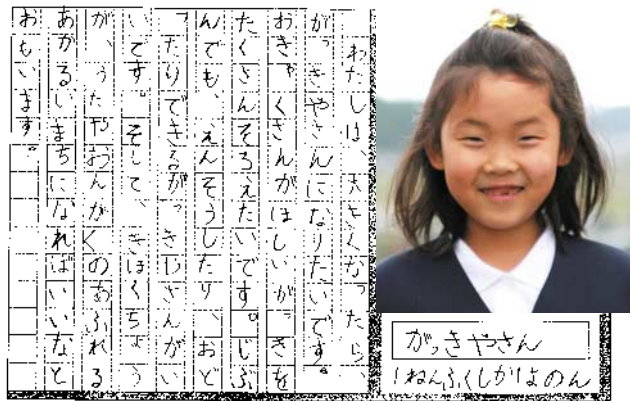 わたしは、大きくなったら
がっきやさんになりたいです。
おきゃくさんがほしいがっきを
たくさんそろえたいです。じぶ
んでも、えんそうしたり、おど
ったりできるがっきやさんがい
いです。そして、きほくちょう
が、うたやおんがくのあふれる
あかるいまちになればいいなと
おもいます。
がっきやさん
1ねんふくしかりよのん